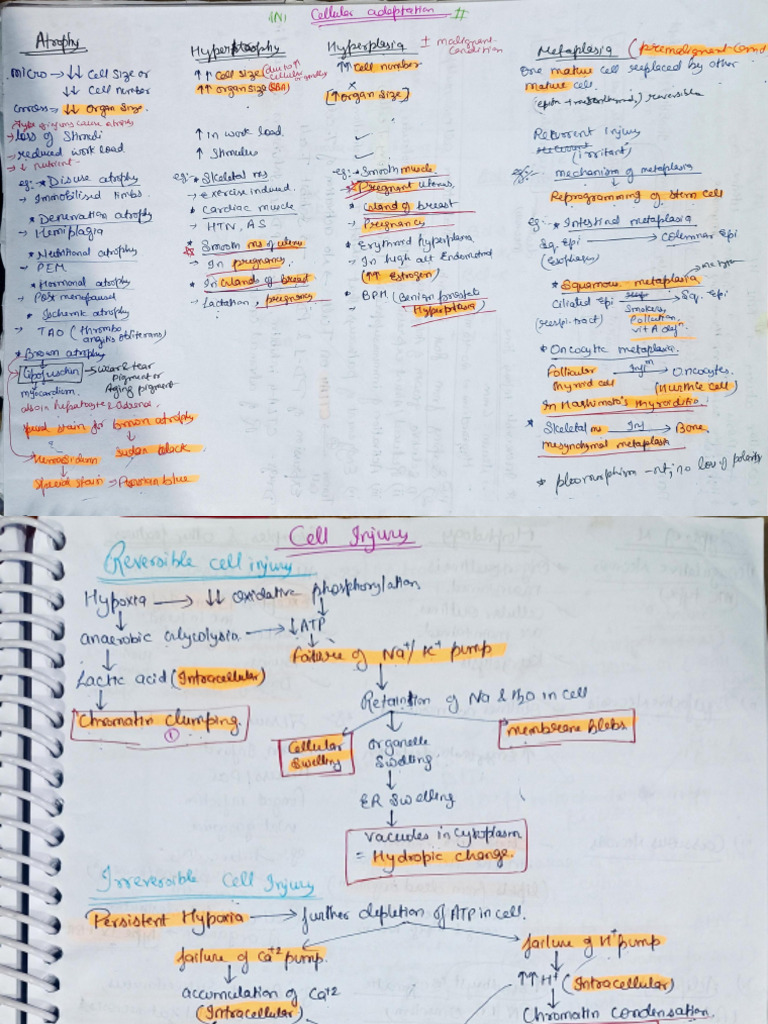 (N) Cellular adaptation #
Atrophy
micro → ↓↓ Cell Size or
↓↓ Cell number
Gross → ↓↓ Organ Size.
→ loss of Stimuli
→ reduced work load
→ ↓ nutrient
eg: * Disuse atrophy
→ Immobilised limbs
* Denervation atrophy
→ Hemiplagia
* Nutritional atrophy
→ PEM
* Hormonal atrophy
→ Post menopausal
* Ischemic atrophy
→ TAO (thrombo angitis obliterans)
* Brown atrophy
Lipofuschin → Wear & tear
pigment or
Aging pigment
myocardium.
also in hepatocyte & adrenal
Special stain for brown atrophy
→ Sudan black
Hemosiderin
Special stain → Prussian blue
Hypertrophy
↑↑ Cell size (due to ↑ cellular organelles)
↑↑ organ size
↑ in work load
↑ Stimulus
eg: * Skeletal ms
→ exercise induced.
* Cardiac muscle
→ HTN, AS
* Smooth ms of uterus
→ In pregnancy
* In Glands of breast
→ Lactation, pregnancy
Hyperplasia ± malignant condition
↑↑ Cell number
×
[↑ Organ Size]
✓
✓
eg: * Smooth muscle
→ Pregnant uterus,
* Gland of breast
→ Pregnancy
* Erythroid hyperplasia
→ In high alt Endometrial
(↑↑ Estrogen)
* BPH (Benign prostate
Hyperplasia)
Metaplasia (premalignant cond
One mature cell replaced by other
mature cell.
reversible
Recurrent Injury
(irritant)
mechanism of metaplasia
↓
Reprogramming of Stem cell
eg: * Intestinal metaplasia
Sq. Epi → Columnar Epi
(Esophagus)
* Squamous metaplasia
Ciliated Epi → Sq. Epi
(respi. tract) Smokers,
Pollution,
vit A defn.
* Oncocytic metaplasia.
Follicular → Oncocytes.
thyroid cell (Hurthle cell)
In Hashimoto's thyroiditis.
* Skeletal ms → Bone
mesenchymal metaplasia
* pleomorphism -nt; no loss of polarity
Cell Injury
Reversible cell injury
Hypoxia → ↓↓ Oxidative phosphorylation
anaerobic glycolysis → ↓ATP
Failure of Na+/K+ pump
Lactic acid (Intracellular)
Retaintion of Na & H2O in cell
Chromatin clumping.
①
Cellular Swelling
Organelle Swelling
membrane blebs
ER Swelling
Vacuoles in cytoplasm
= Hydropic change.
Irreversible Cell Injury
Persistent Hypoxia → further depletion of ATP in cell.
failure of Ca+2 pump.
failure of H+ pump
↑↑ H+ (Intracellular)
accumulation of Ca+2
(Intracellular)
Chromatin condensation.